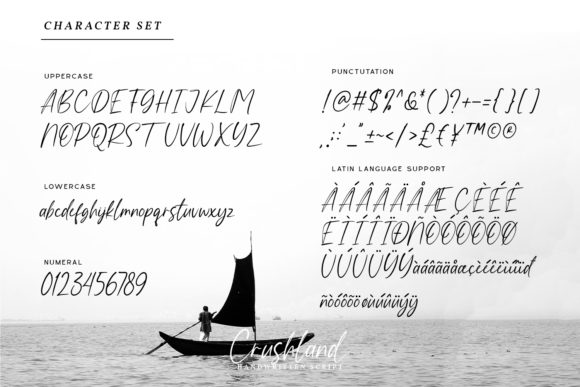 CHARACTER SET
UPPERCASE
ABCDEFGHIJKLM
NOPQRSTUVWXYZ
LOWERCASE
abcdefghijklmnopqrstuvwxyz
NUMERAL
0123456789
PUNCTUTATION
!@#$%^&*()?+-={}[]
,.:;'_"±~</>££¥™©®
LATIN LANGUAGE SUPPORT
ÀÁÂÃÄÅÆÇÈÉÊ
ËÌÍÎÏÐÑÒÓÔÕÖØ
ÙÚÛÜŸÝàáâãäåæçèéêëìíîïđ
ñòóôõöøùúûüýÿ
Crushland
HANDWRITTEN SCRIPT